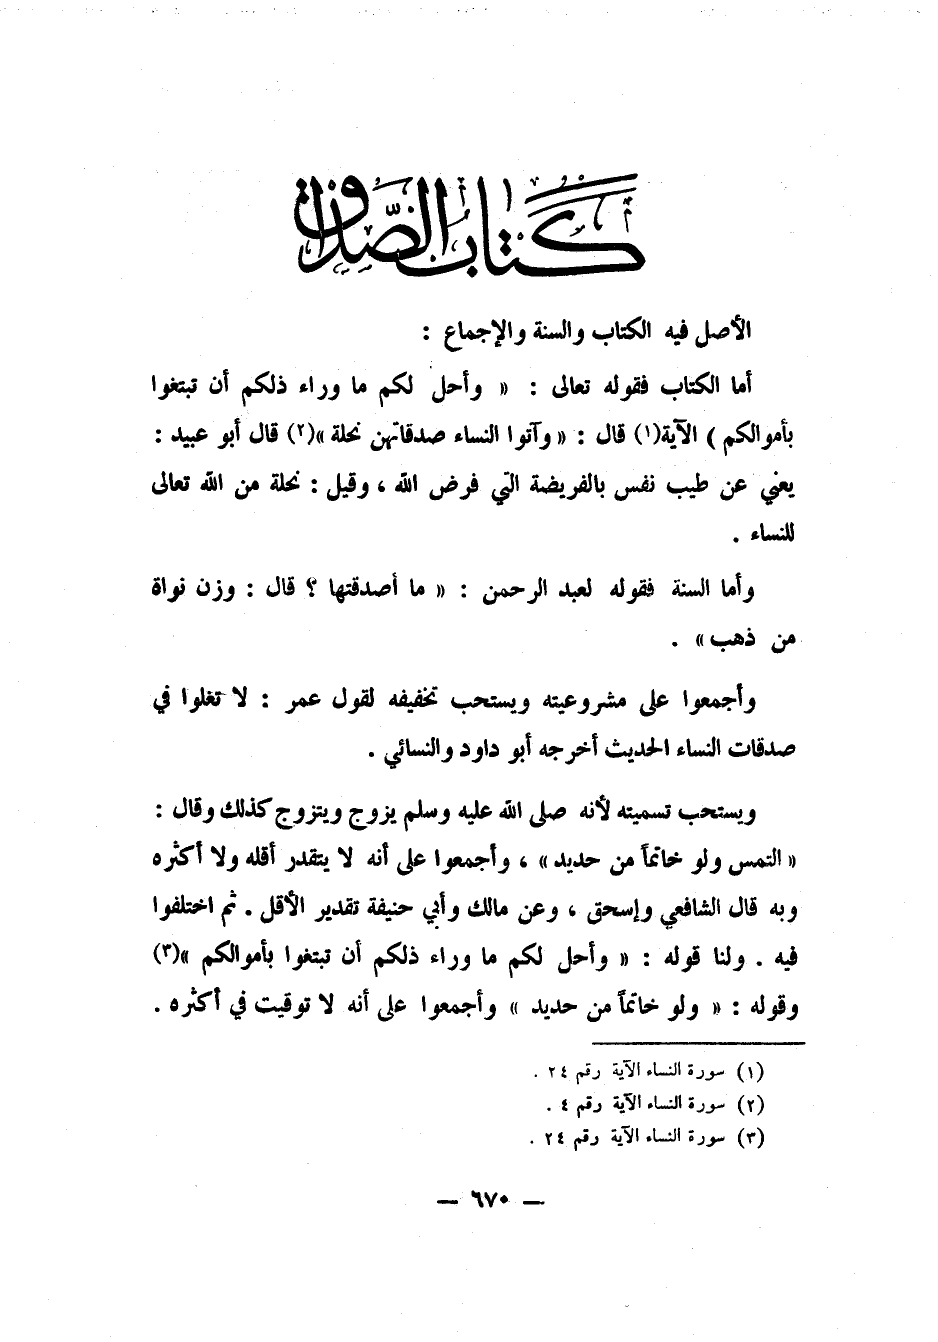 كتاب الصّداق
الأصل فيه الكتاب والسنة والإجماع :
أما الكتاب فقوله تعالى : « وأحل لكم ما وراء ذلكم أن تبتغوا
بأموالكم ) الآية(١) قال : « وآتوا النساء صدقاتهن نحلة »(٢) قال أبو عبيد :
يعني عن طيب نفس بالفريضة التي فرض الله ، وقيل : نحلة من الله تعالى
للنساء .
وأما السنة فقوله لعبد الرحمن : « ما أصدقتها ؟ قال : وزن نواة
من ذهب » .
وأجمعوا على مشروعيته ويستحب تخفيفه لقول عمر : لا تغلوا في
صدقات النساء الحديث أخرجه أبو داود والنسائي .
ويستحب تسميته لأنه صلى الله عليه وسلم يزوج ويتزوج كذلك وقال :
« التمس ولو خاتماً من حديد » ، وأجمعوا على أنه لا يتقدر أقله ولا أكثره
وبه قال الشافعي وإسحق ، وعن مالك وأبي حنيفة تقدير الأقل . ثم اختلفوا
فيه . ولنا قوله : « وأحل لكم ما وراء ذلكم أن تبتغوا بأموالكم »(٣)
وقوله : « ولو خاتماً من حديد » وأجمعوا على أنه لا توقيت في أكثره .
(١) سورة النساء الآية رقم ٢٤ .
(٢) سورة النساء الآية رقم ٤ .
(٣) سورة النساء الآية رقم ٢٤ .
— ٦٧٠ —